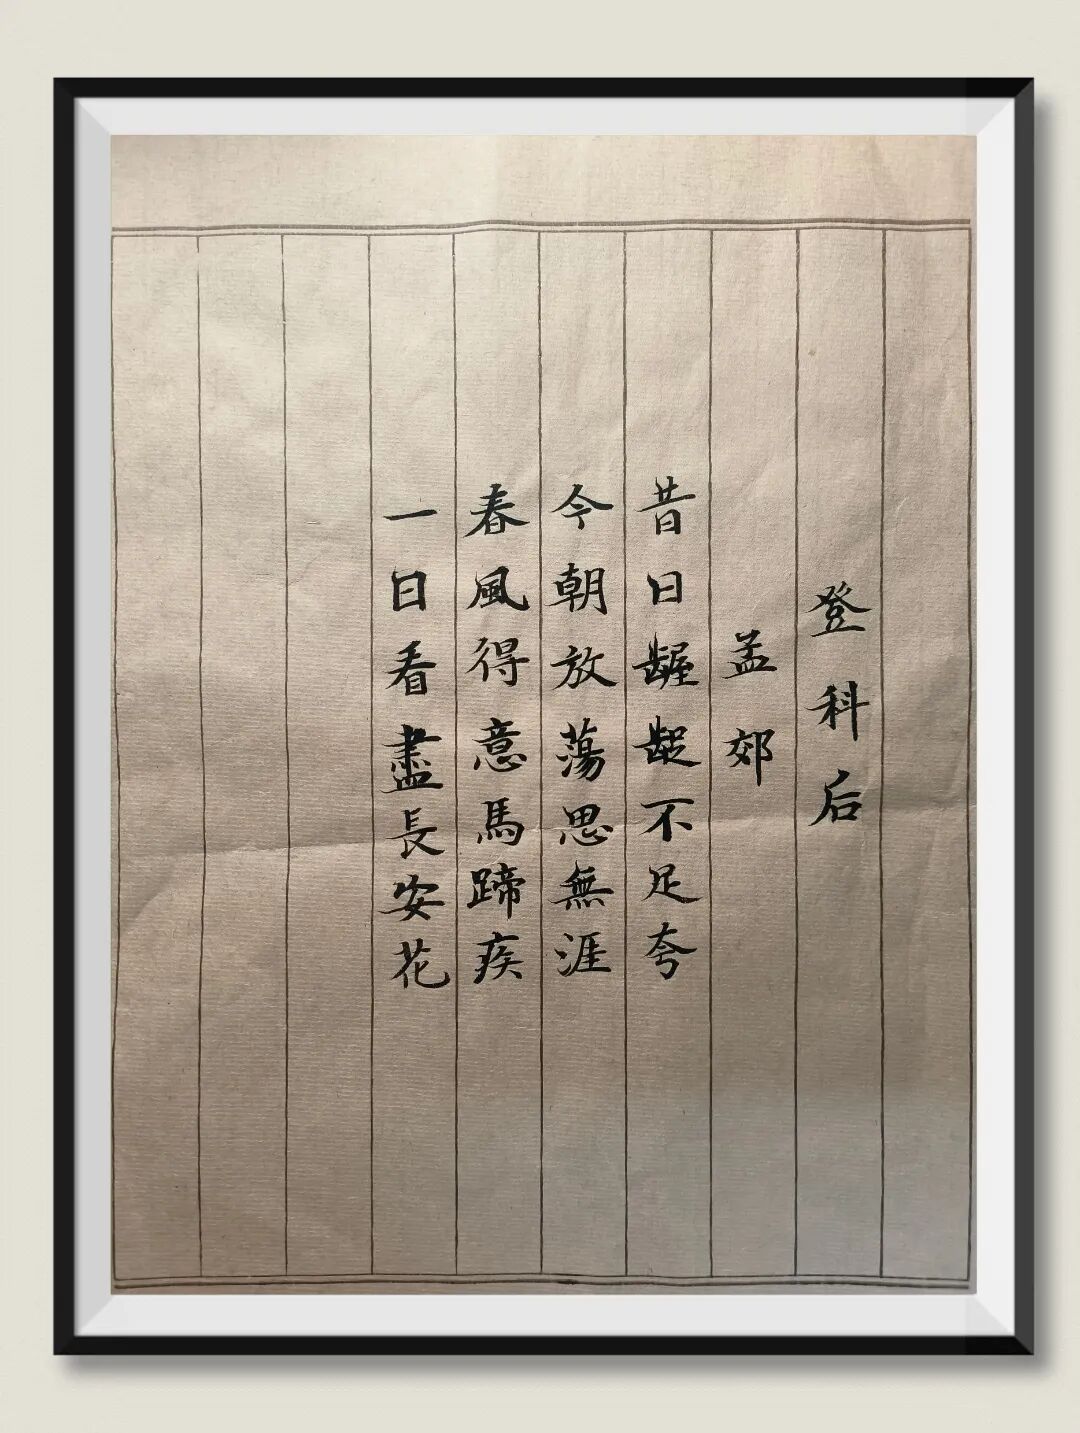 登科后
孟郊
昔日齷齪不足夸
今朝放蕩思無涯
春風得意馬蹄疾
一日看盡長安花